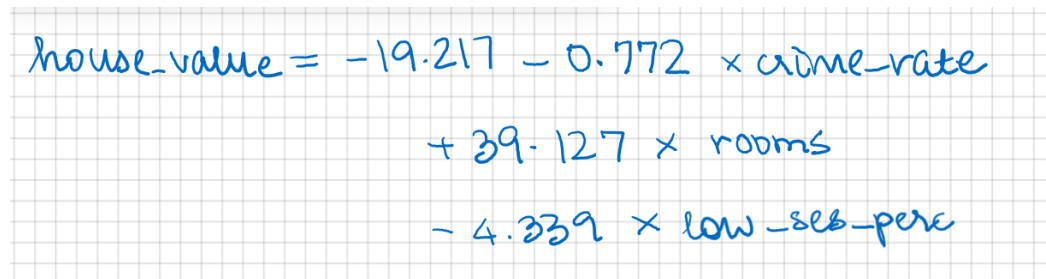 house_value = -19.217 - 0.772 × crime_rate
+ 39.127 × rooms
- 4.339 × low_ses_perc